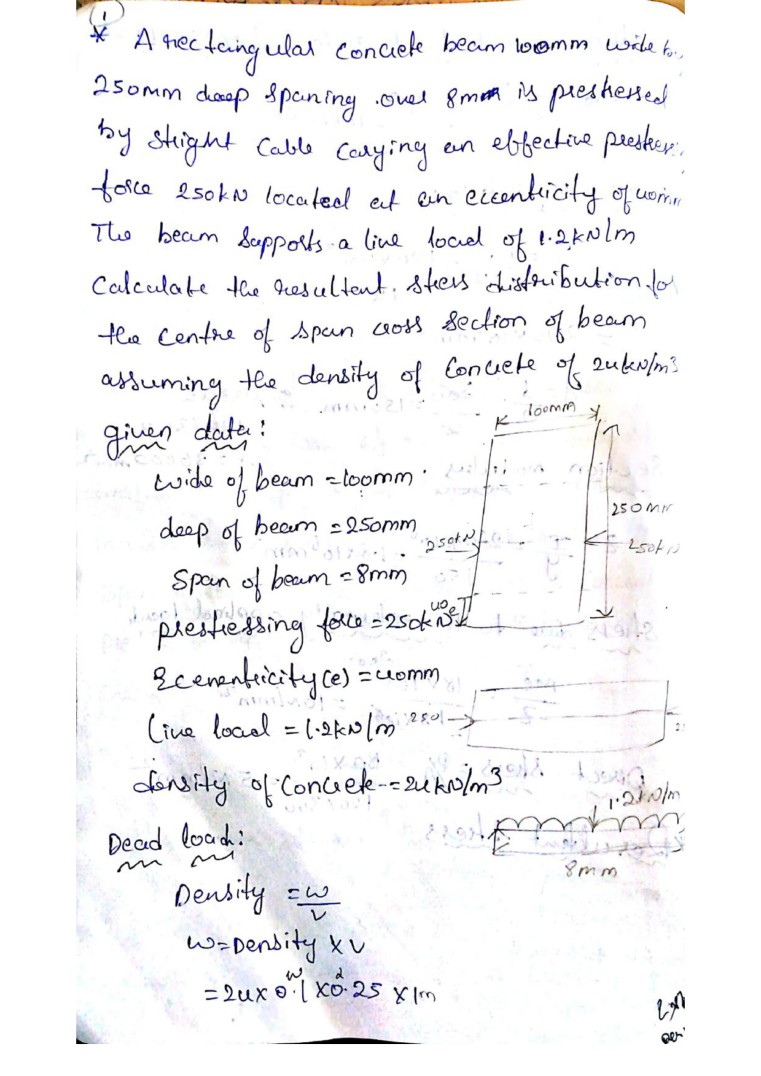 1
* A rectangular concrete beam 100mm wide &
250mm deep spaning over 8mm is prestressed
by stright cable carying an effective prestress
force 250kN located at an eccentricity of 40mm
The beam supports a live load of 1.2kN/m
Calculate the resultent stress distribution for
the centre of span cross section of beam
assuming the density of concrete of 24kN/m3
given data:
wide of beam =100mm
deep of beam =250mm
Span of beam =8mm
prestressing force =250kN
Ecenentricity(e) =40mm
live load = 1.2kN/m
density of concrete = 24kN/m3
100mm
250mm
250kN
250kN
40
e
250
1.2kN/m
8mm
Dead load:
Density = w/v
w=Density x v
w d
=24x 0.1 x0.25 x1m